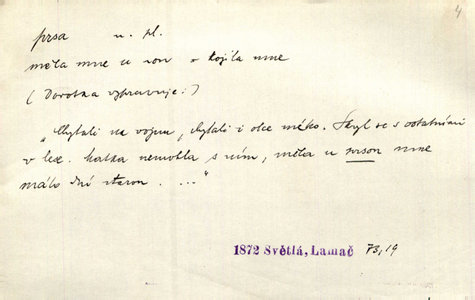 4
prsa n. pl.
měla mne u prsou = kojila mne
(Dorotka vypravuje:)
„Chytali na vojnu, chytali i otce mého. Skryl se s ostatními
v lese. Matka nemohla s ním, měla u prsou mne
málo dní starou. ..."
1872 Světlá, Lamač 73, 19